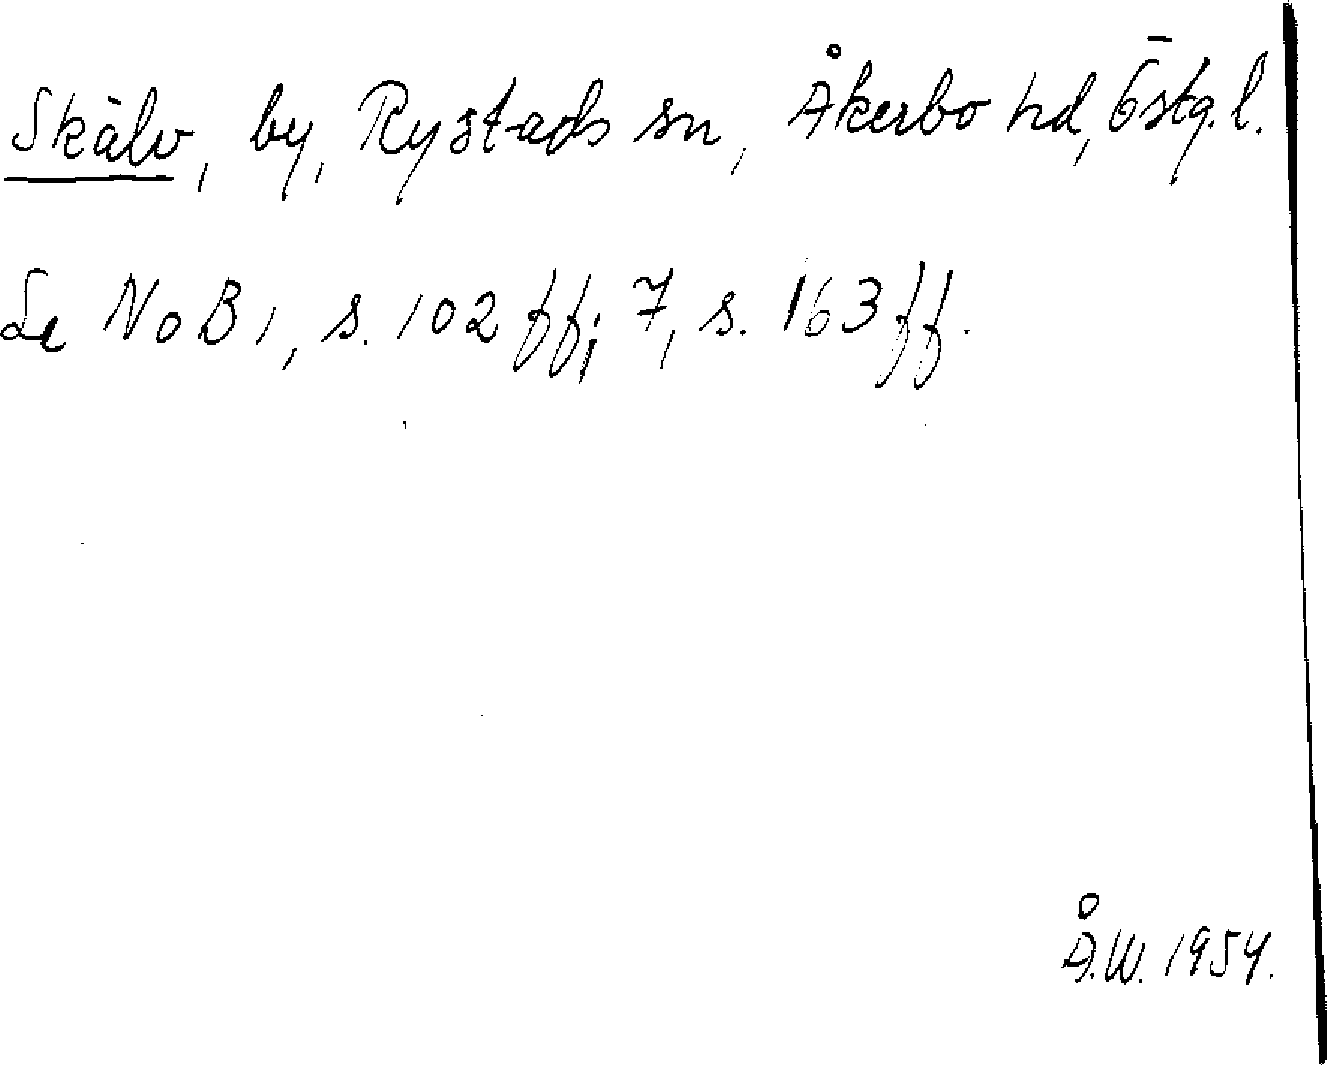 Skälv, by, Rystads sn, Åkerbo hd, Östg.l.
Se NoB 1, s. 102 ff; 7, s. 163 ff.
Å.W. 1954.